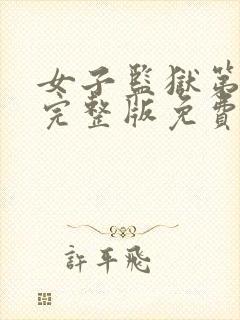 女子監獄第
完整版免費
許平飛